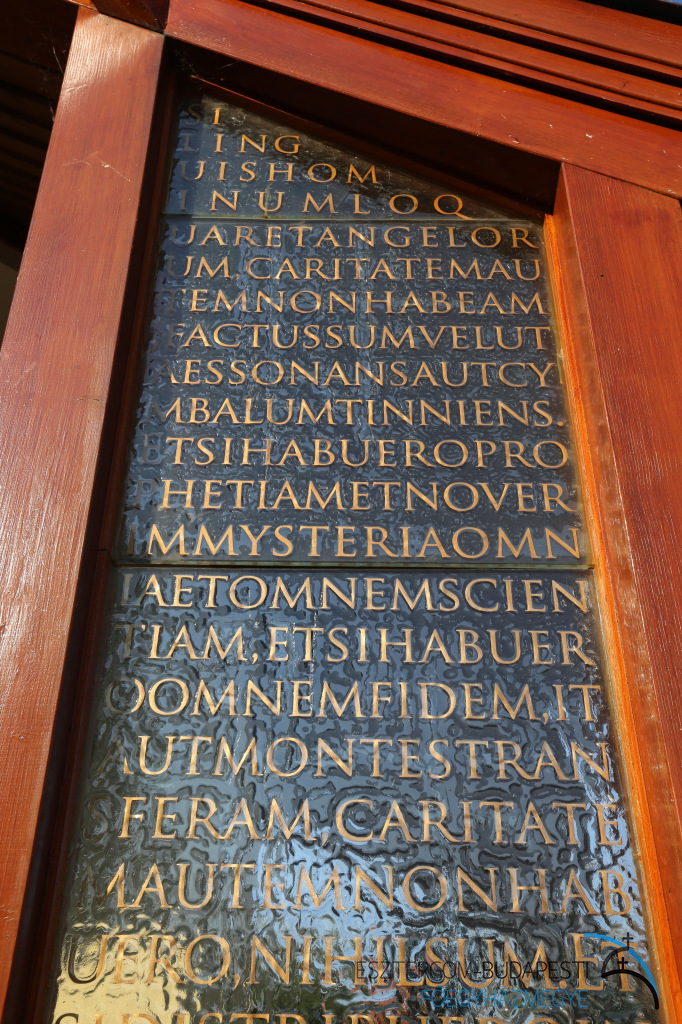 SI
LING
UISHOM
INUMLOQ
UARETANGELOR
UM, CARITATEMAU
TEMNONHABEAM
FACTUSSUMVELUT
AESSONANSAUTCY
MBALUMTINNIENS.
ETSIHABUEROPRO
PHETIAMETNOVER
IMMYSTERIAOMN
IAETOMNEMSCIEN
TIAM, ETSIHABUER
OOMNEMFIDEM, IT
AUTMONTESTRAN
SFERAM, CARITATE
MAUTEMNONHAB
UERO, NIHILSUM. ET
SIDISTRIBUERO
ESZTERGOM-BUDAPESTI
FŐEGYHÁZMEGYE